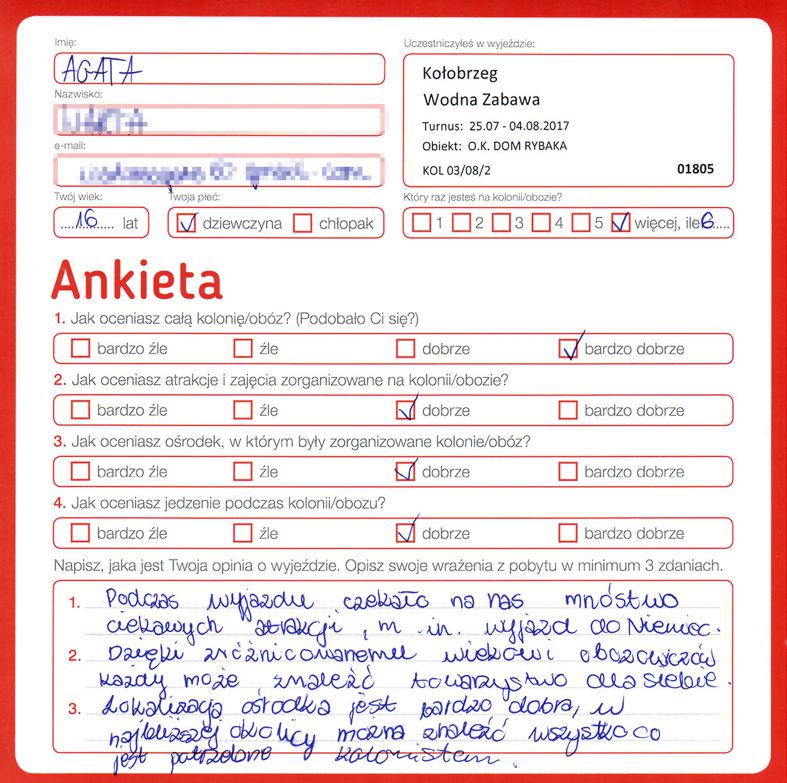 Imię:
AGATA
Uczestniczyłeś w wyjeździe:
Kołobrzeg
Wodna Zabawa
Turnus: 25.07 - 04.08.2017
Obiekt: O.K. DOM RYBAKA
KOL 03/08/2
01805
Nazwisko:
e-mail:
Twój wiek:
16 lat
Twoja płeć:
dziewczyna chłopak
Który raz jesteś na kolonii/obozie?
1 2 3 4 5 więcej, ile 6
Ankieta
1. Jak oceniasz całą kolonię/obóz? (Podobało Ci się?)
bardzo źle źle dobrze bardzo dobrze
2. Jak oceniasz atrakcje i zajęcia zorganizowane na kolonii/obozie?
bardzo źle źle dobrze bardzo dobrze
3. Jak oceniasz ośrodek, w którym były zorganizowane kolonie/obóz?
bardzo źle źle dobrze bardzo dobrze
4. Jak oceniasz jedzenie podczas kolonii/obozu?
bardzo źle źle dobrze bardzo dobrze
Napisz, jaka jest Twoja opinia o wyjeździe. Opisz swoje wrażenia z pobytu w minimum 3 zdaniach.
1. Podczas wyjazdu czekało na nas mnóstwo
ciekawych atrakcji, m. in. wyjazd do Niemiec.
2. Dzięki zróżnicowanemu wiekowi obozowiczów
każdy może znaleźć towarzystwo dla siebie.
3. Lokalizacja ośrodka jest bardzo dobra, w
najbliższej okolicy można znaleźć wszystko co
jest potrzebne kolonistom.